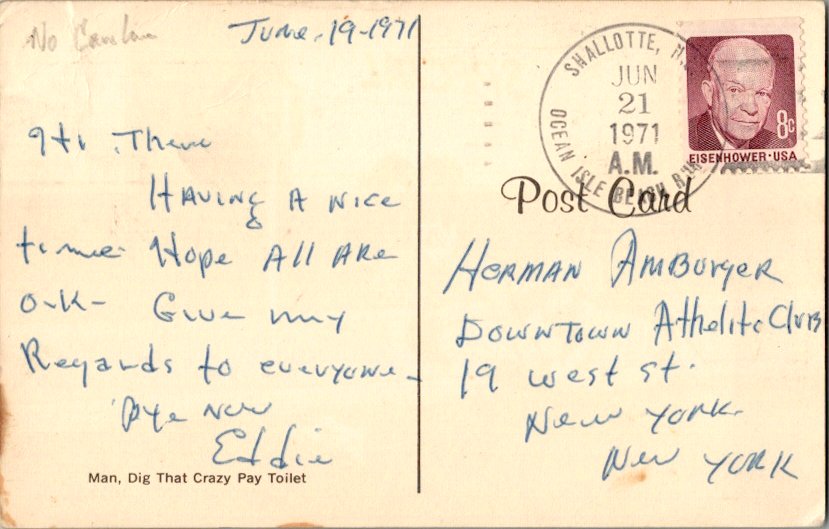 No
June-19-1971
Hi There
Having A Nice
time Hope All ARe
O-K- Give my
Regards to everyone-
Bye Now
Eddie
Man, Dig That Crazy Pay Toilet
SHALLOTTE, N.
OCEAN ISLE BEACH RUR
JUN
21
1971
A.M.
8c
EISENHOWER·USA
Post Card
HERMAN AMBURGER
DOWNTOWN Athelitic Club
19 west st.
New York.
New York